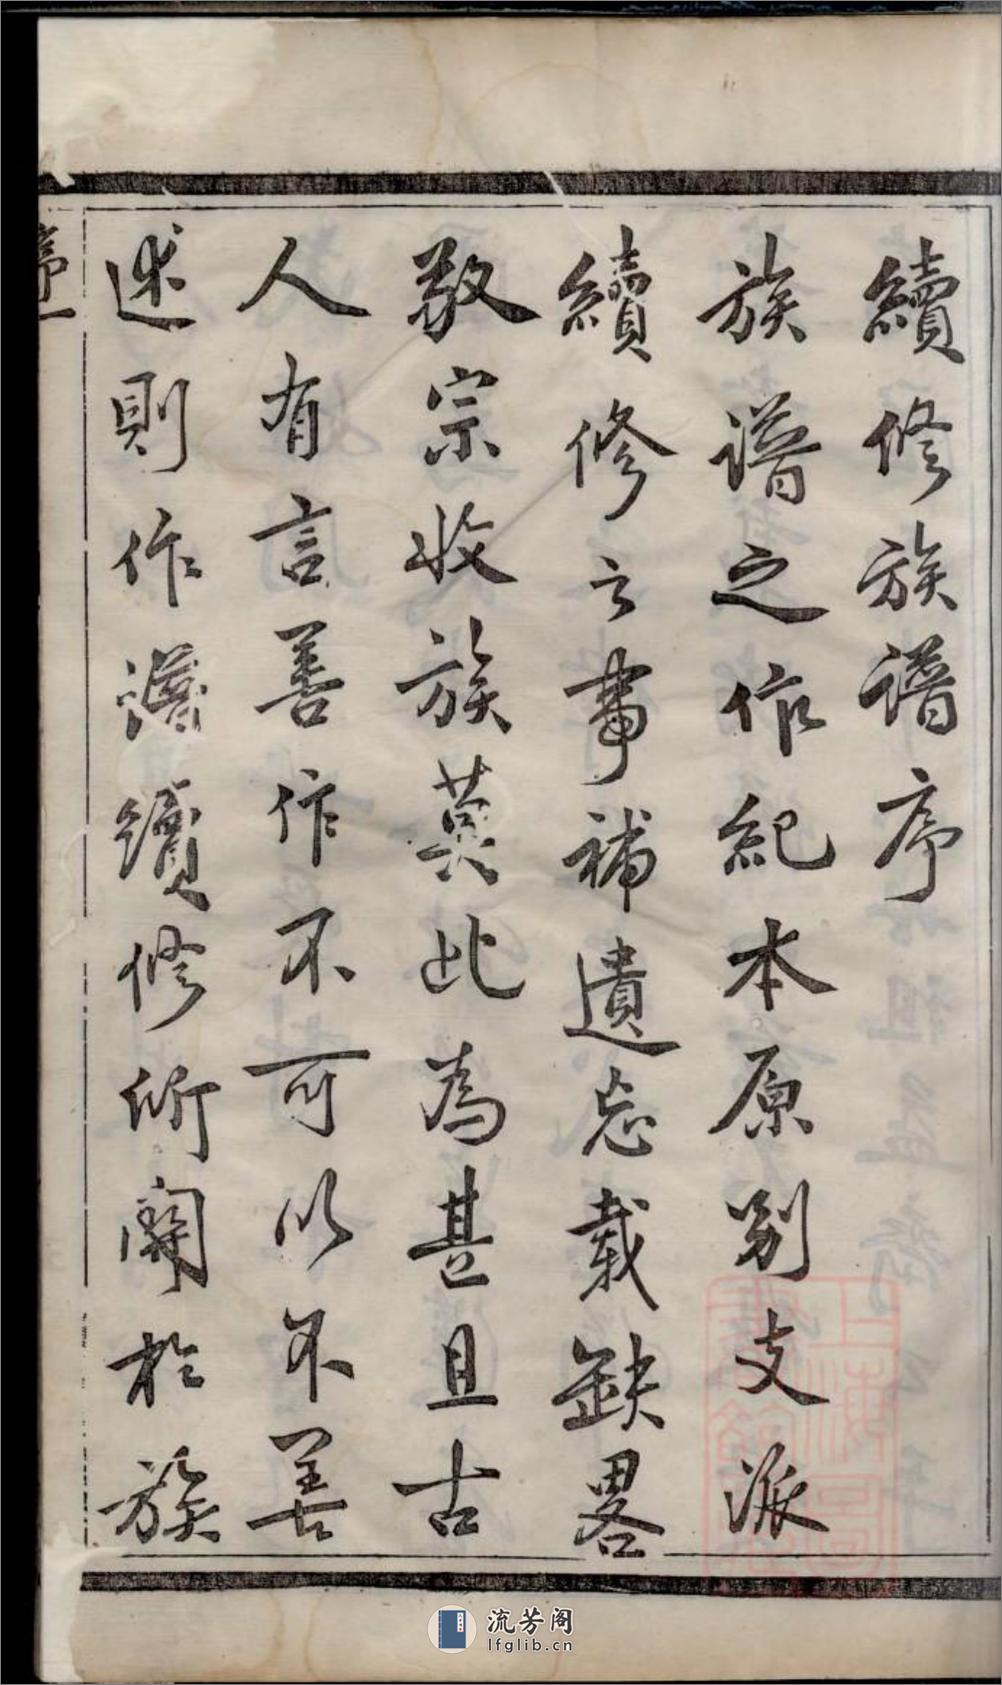 續修族譜序
族譜之作紀本原别支派
續修之事補遺忘載缺畧
敬宗收族莫此為甚且古
人有言善作不可以不善
述則作譜續修所關於族
序一
流芳阁
lfglib.cn